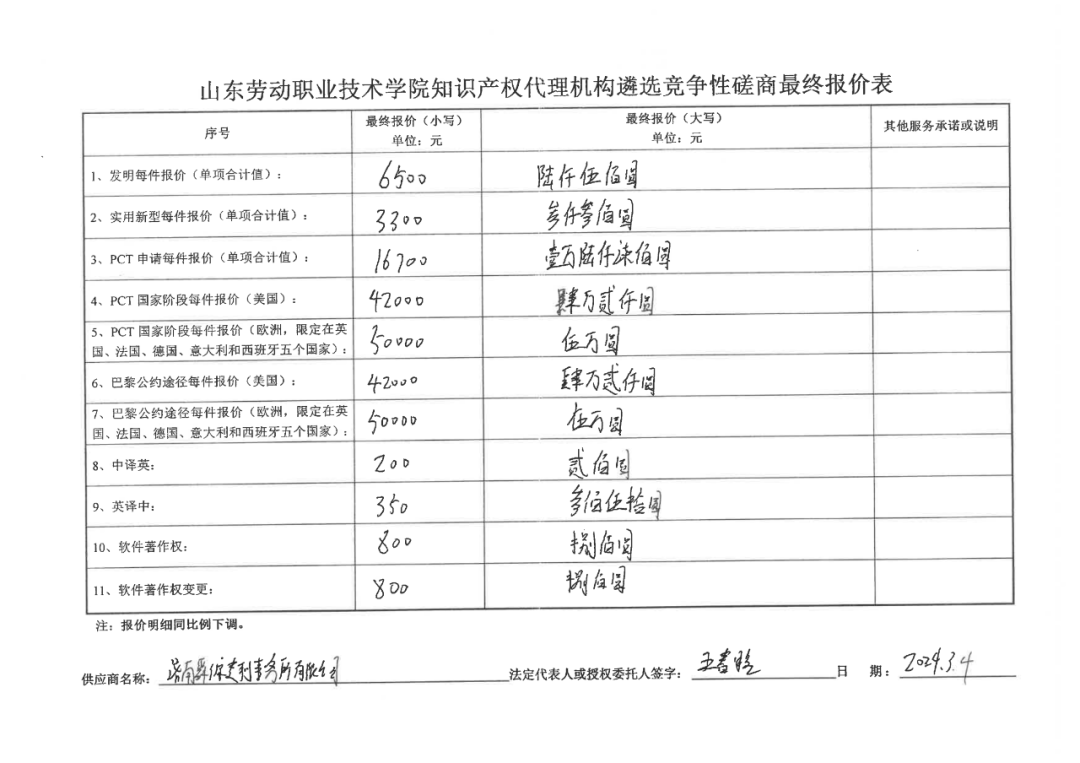 山东劳动职业技术学院知识产权代理机构遴选竞争性磋商最终报价表
序号 最终报价（小写） 单位：元 最终报价（大写） 单位：元 其他服务承诺或说明
1、发明每件报价（单项合计值）： 6500 陆仟伍佰圆
2、实用新型每件报价（单项合计值）： 3300 叁仟叁佰圆
3、PCT 申请每件报价（单项合计值）： 16700 壹万陆仟柒佰圆
4、PCT 国家阶段每件报价（美国）： 42000 肆万贰仟圆
5、PCT 国家阶段每件报价（欧洲，限定在英
国、法国、德国、意大利和西班牙五个国家）： 50000 伍万圆
6、巴黎公约途径每件报价（美国）： 42000 肆万贰仟圆
7、巴黎公约途径每件报价（欧洲，限定在英
国、法国、德国、意大利和西班牙五个国家）： 50000 伍万圆
8、中译英： 200 贰佰圆
9、英译中： 350 叁佰伍拾圆
10、软件著作权： 800 捌佰圆
11、软件著作权变更： 800 捌佰圆
注：报价明细同比例下调。
供应商名称： 专利事务所有限公司 法定代表人或授权委托人签字： 王 日 期： 2024.3.4